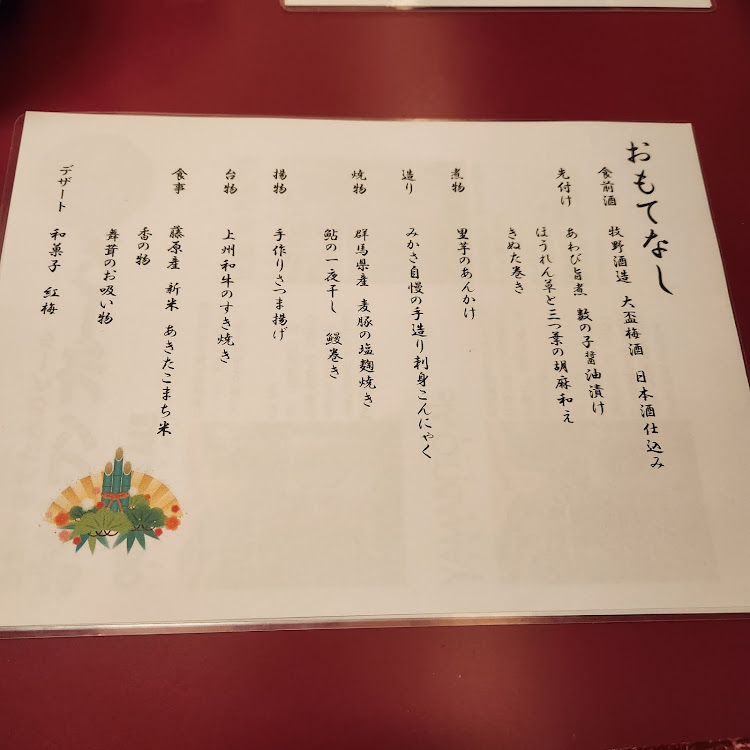 おもてなし
食前酒　牧野酒造　大盃梅酒　日本酒仕込み
先付け　あわび旨煮　数の子醤油漬け
ほうれん草と三つ葉の胡麻和え
きぬた巻き
煮物　里芋のあんかけ
造り　みかさ自慢の手造り刺身こんにゃく
焼物　群馬県産　麦豚の塩麹焼き
鮎の一夜干し　鰻巻き
揚物　手作りさつま揚げ
台物　上州和牛のすき焼き
食事　藤原産　新米　あきたこまち米
香の物
舞茸のお吸い物
デザート　和菓子　紅梅